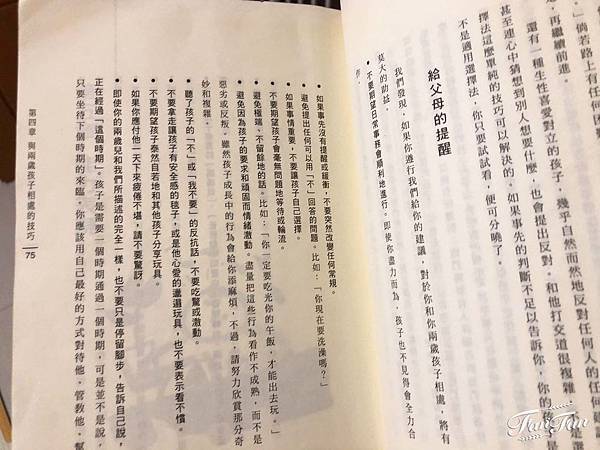 」倘若路上有任何
，再繼續前進。
還有一種生性喜愛對立的孩子，幾乎自然而然地反對任何人的
甚至連心中猜想到別人想要什麼，也會提出反對。和他打交道很複雜，
是選
擇法這麼單純的技巧可以解決的。如果事先的判斷不足以告訴你，你的孩子是
不是適用選擇法，你只要試試看，便可分曉了。
給父母的提醒
我們發現，如果你遵行我們給你的建議，對於你和你兩歲孩子相處，將有
莫大的助益。
• 不要期望日常事務會順利地進行。即使你盡力而為，孩子也不見得會全力合
作。
• 如果事先沒有提醒或緩衝，不要突然改變任何常規。
• 避免提出任何可以用「不」回答的問題。比如：「你現在要洗澡嗎？」
• 如果事情重要，不要讓孩子自己選擇。
• 不要期望孩子會毫無問題地等待或輪流。
• 避免極端、不留餘地的話。比如：「你一定要吃光你的午飯，才能出去玩。」
• 避免因為孩子的要求和頑固而情緒激動。盡量把這些行為看作不成熟，而不是
惡劣或反叛。雖然孩子成長中的行為會給你添麻煩，不過，請努力欣賞那分奇
妙和複雜。
• 聽了孩子的「不」或「我不要」的反抗話，不要吃驚或激動。
• 不要拿走讓孩子有安全感的毯子，或是他心愛的邋遢玩具，也不要表示看不慣。
• 不要期望孩子泰然自若地和其他孩子分享玩具。
• 如果你應付他一天下來疲倦不堪，請不要驚訝。
• 即使你的兩歲兒和我們所描述的完全一樣，也不要只是停留腳步，告訴自己說，
正在經過「這個時期」。孩子是需要一個時期通過一個時期，可是並不是說，
只要坐待下個時期的來臨。你應該用自己最好的方式對待他，管教他，幫
第四章 與兩歲孩子相處的技巧 75
FunFun